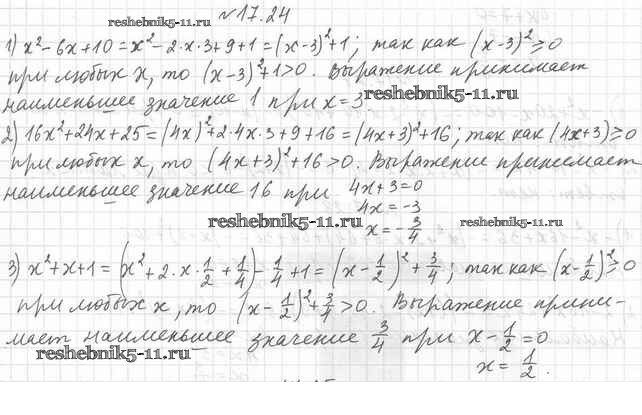 reshebnik5-11.ru
№17.24
1) x²-6x+10=x²-2·x·3+9+1=(x-3)²+1; так как (x-3)²≥0
при любых x, то (x-3)²+1>0. Выражение принимает
наименьшее значение 1 при x=3 reshebnik5-11.ru
2) 16x²+24x+25=(4x)²+2·4x·3+9+16=(4x+3)²+16; так как (4x+3)≥0
при любых x, то (4x+3)²+16>0. Выражение принимает
наименьшее значение 16 при 4x+3=0
4x=-3
reshebnik5-11.ru x=-3/4 reshebnik5-11.ru
3) x²+x+1=(x²+2·x·1/2+1/4)-1/4+1=(x-1/2)²+3/4; так как (x-1/2)²≥0
при любых x, то (x-1/2)²+3/4>0. Выражение прини-
мает наименьшее значение 3/4 при x-1/2=0
reshebnik5-11.ru x=1/2.